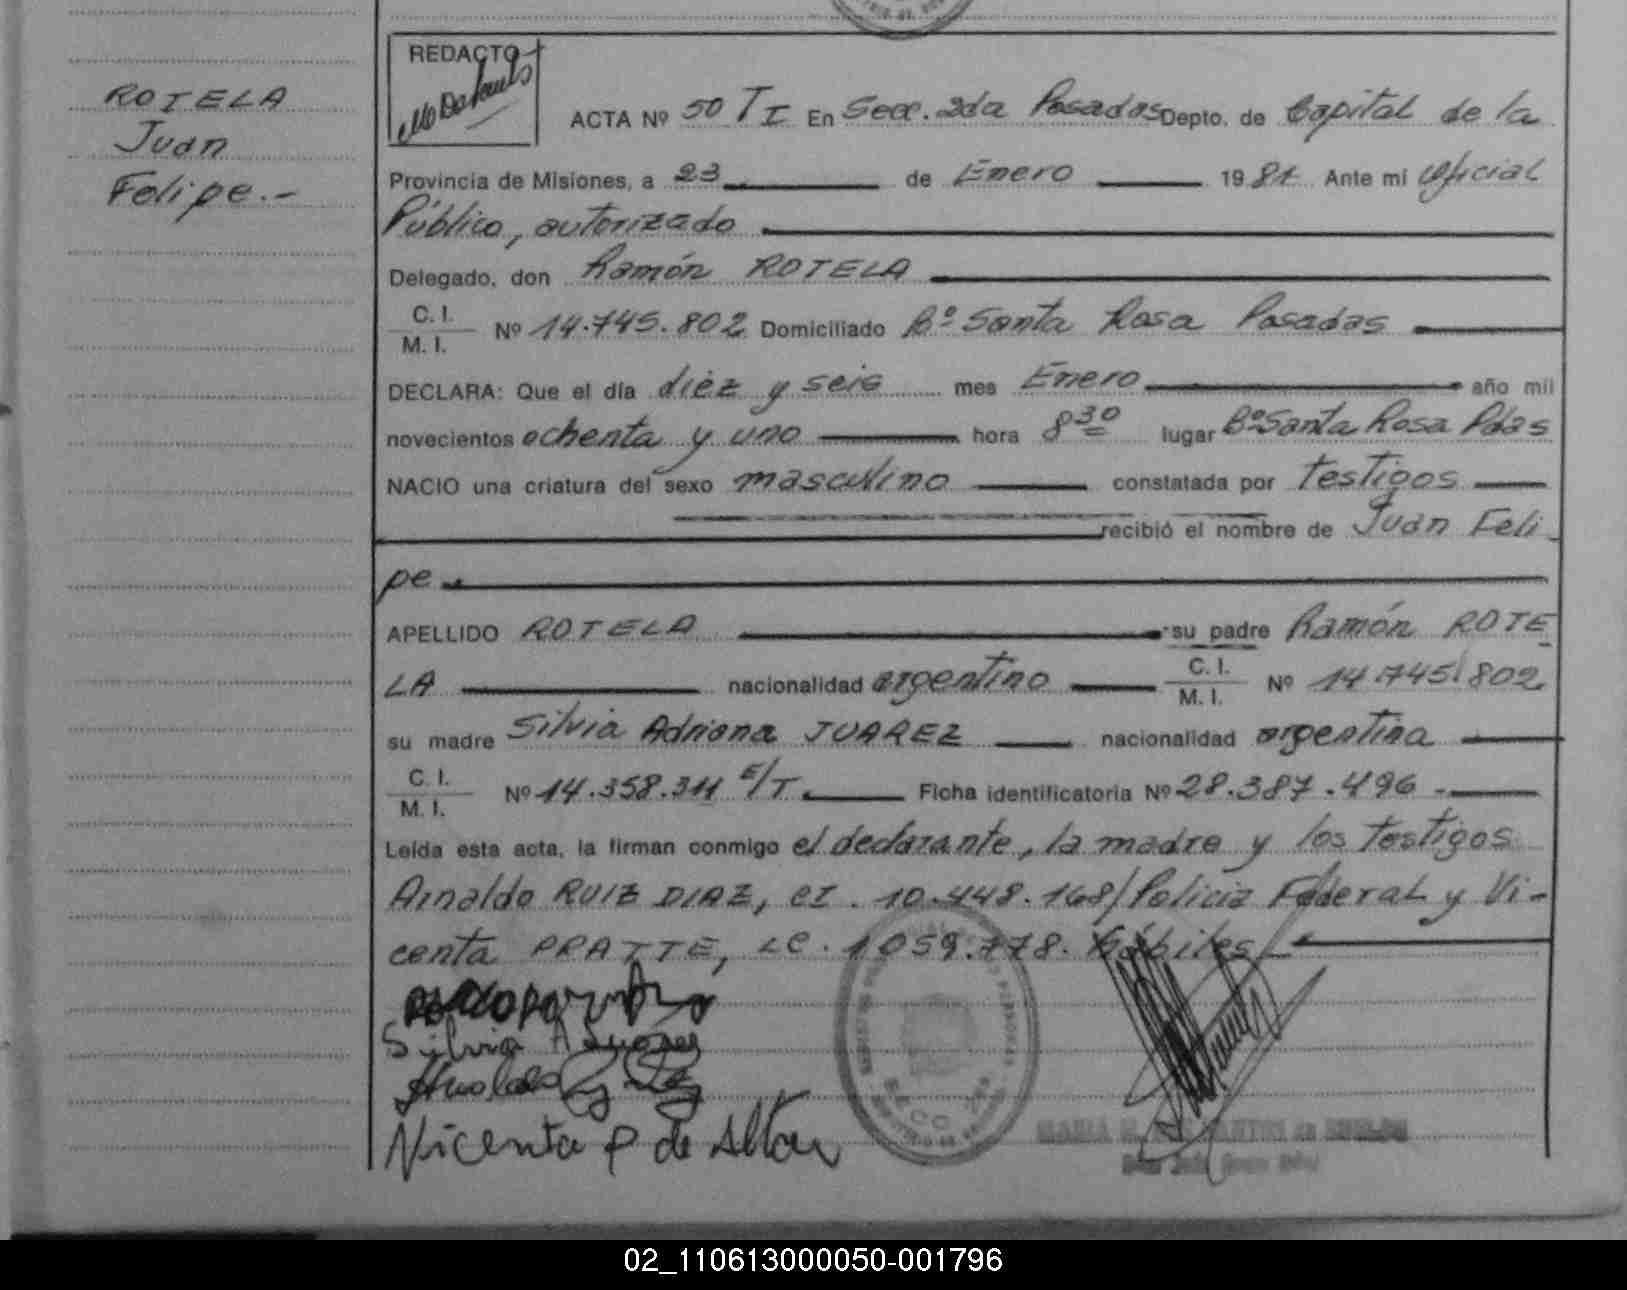 ROTELA
Juan
Felipe.-
REDACTO
ACTA Nº 50 TI En Secc. 2da Posadas Depto. de Capital de la
Provincia de Misiones, a 23 de Enero 1981 Ante mi Oficial
Público, autorizado
Delegado, don Ramón ROTELA
C. I.
M. I. Nº 14.745.802 Domiciliado Bº Santa Rosa Posadas
DECLARA: Que el día diez y seis mes Enero año mil
novecientos ochenta y uno hora 8 30 lugar Bº Santa Rosa Pdas
NACIO una criatura del sexo masculino constatada por testigos
recibió el nombre de Juan Feli
pe
APELLIDO ROTELA su padre Ramón ROTE
LA nacionalidad argentino C. I. M. I. Nº 14.745.802
su madre Silvia Adriana JUAREZ nacionalidad argentina
C. I.
M. I. Nº 14.358.311 E/T. Ficha identificatoria Nº 28.387.496.-
Leída esta acta, la firman conmigo el declarante, la madre y los testigos
Arnaldo RUIZ DIAZ, CI. 10.448.168/Policia Federal y Vi-
centa PRATTE, LC. 1059.778. Hábiles
Silvia A Juarez
Vicenta P de
02_110613000050-001796